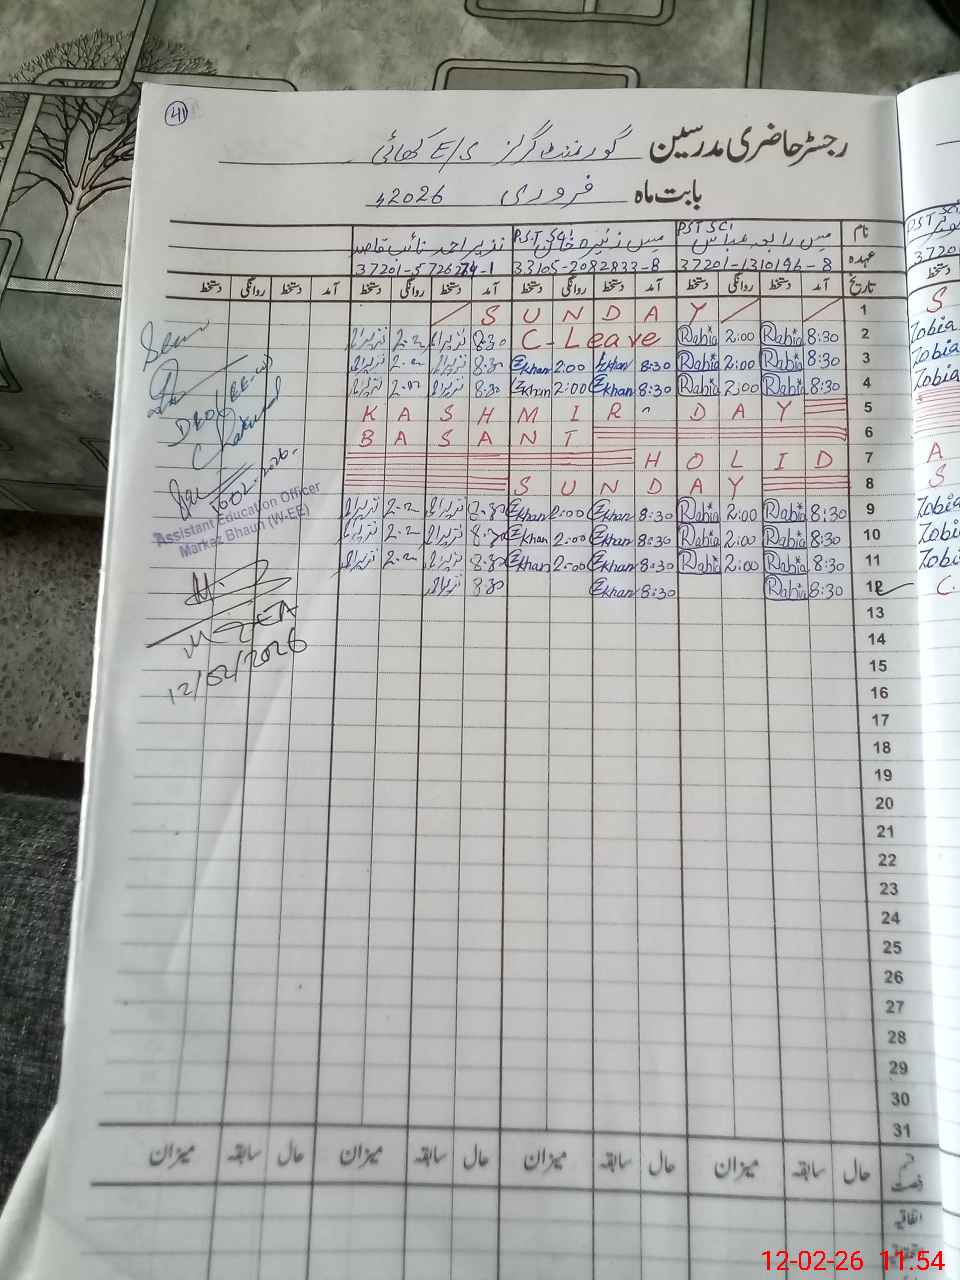 41
رجسٹر حاضری مدرسین گورنمنٹ گرلز E/S کھائی
بابت ماہ فروری 2026ء
نام PST SCI مس رابعہ عباس P.S.T SCI مس زنیرہ خان نذیر احمد نائب قاصد
عہدہ 37201-1310196-8 33105-2082833-8 37201-5726274-1
تاریخ آمد دستخط روانگی دستخط آمد دستخط روانگی دستخط آمد دستخط روانگی دستخط آمد دستخط روانگی دستخط
1 S U N D A Y
2 8:30 Rabia 2:00 Rabia C-Leave 8:30 نذیر 2:00 نذیر
3 8:30 Rabia 2:00 Rabia 8:30 Ekhan 2:00 Ekhan 8:30 نذیر 2:00 نذیر
4 8:30 Rabia 2:00 Rabia 8:30 Ekhan 2:00 Ekhan 8:30 نذیر 2:00 نذیر
5 K A S H M I R DAY
6 B A S A N T
7 H O L I D A
8 S U N D A Y S
9 8:30 Rabia 2:00 Rabia 8:30 Ekhan 2:00 Ekhan 8:30 نذیر 2:00 نذیر
10 8:30 Rabia 2:00 Rabia 8:30 Ekhan 2:00 Ekhan 8:30 نذیر 2:00 نذیر
11 8:30 Rabia 2:00 Rabia 8:30 Ekhan 2:00 Ekhan 8:30 نذیر 2:00 نذیر
12 8:30 Rabia 8:30 Ekhan 8:30 نذیر
13
14
15
16
17
18
19
20
21
22
23
24
25
26
27
28
29
30
31
قسم رخصت حال سابقہ میزان حال سابقہ میزان حال سابقہ میزان حال سابقہ میزان
اتفاقیہ
Assistant Education Officer
Markaz Bhaun (W-EE)
12/02/2026
PST SCI
37201
دستخط
S
Zobia
Zobia
Zobia
A
S
Zobia
Zobia
Zobia
C.
12-02-26 11:54